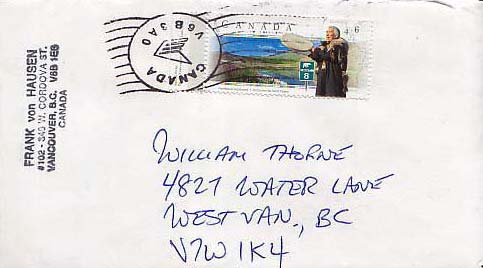 FRANK von HAUSEN
#102 - 340 W. CORDOVA ST.
VANCOUVER, B.C. V6B 1E8
CANADA
CANADA
V6B 3A0
CANADA
46
8
WILLIAM THORNE
4827 WATER LANE
WEST VAN., BC
V7W 1K4